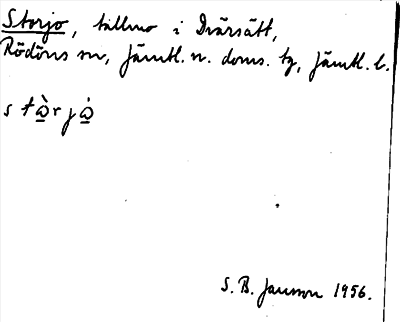 Storjo, tillmo i Dvärsätt,
Rödöns sn, Jämtl. n. doms. tg, Jämtl. l.
S. B. Jansson 1956.